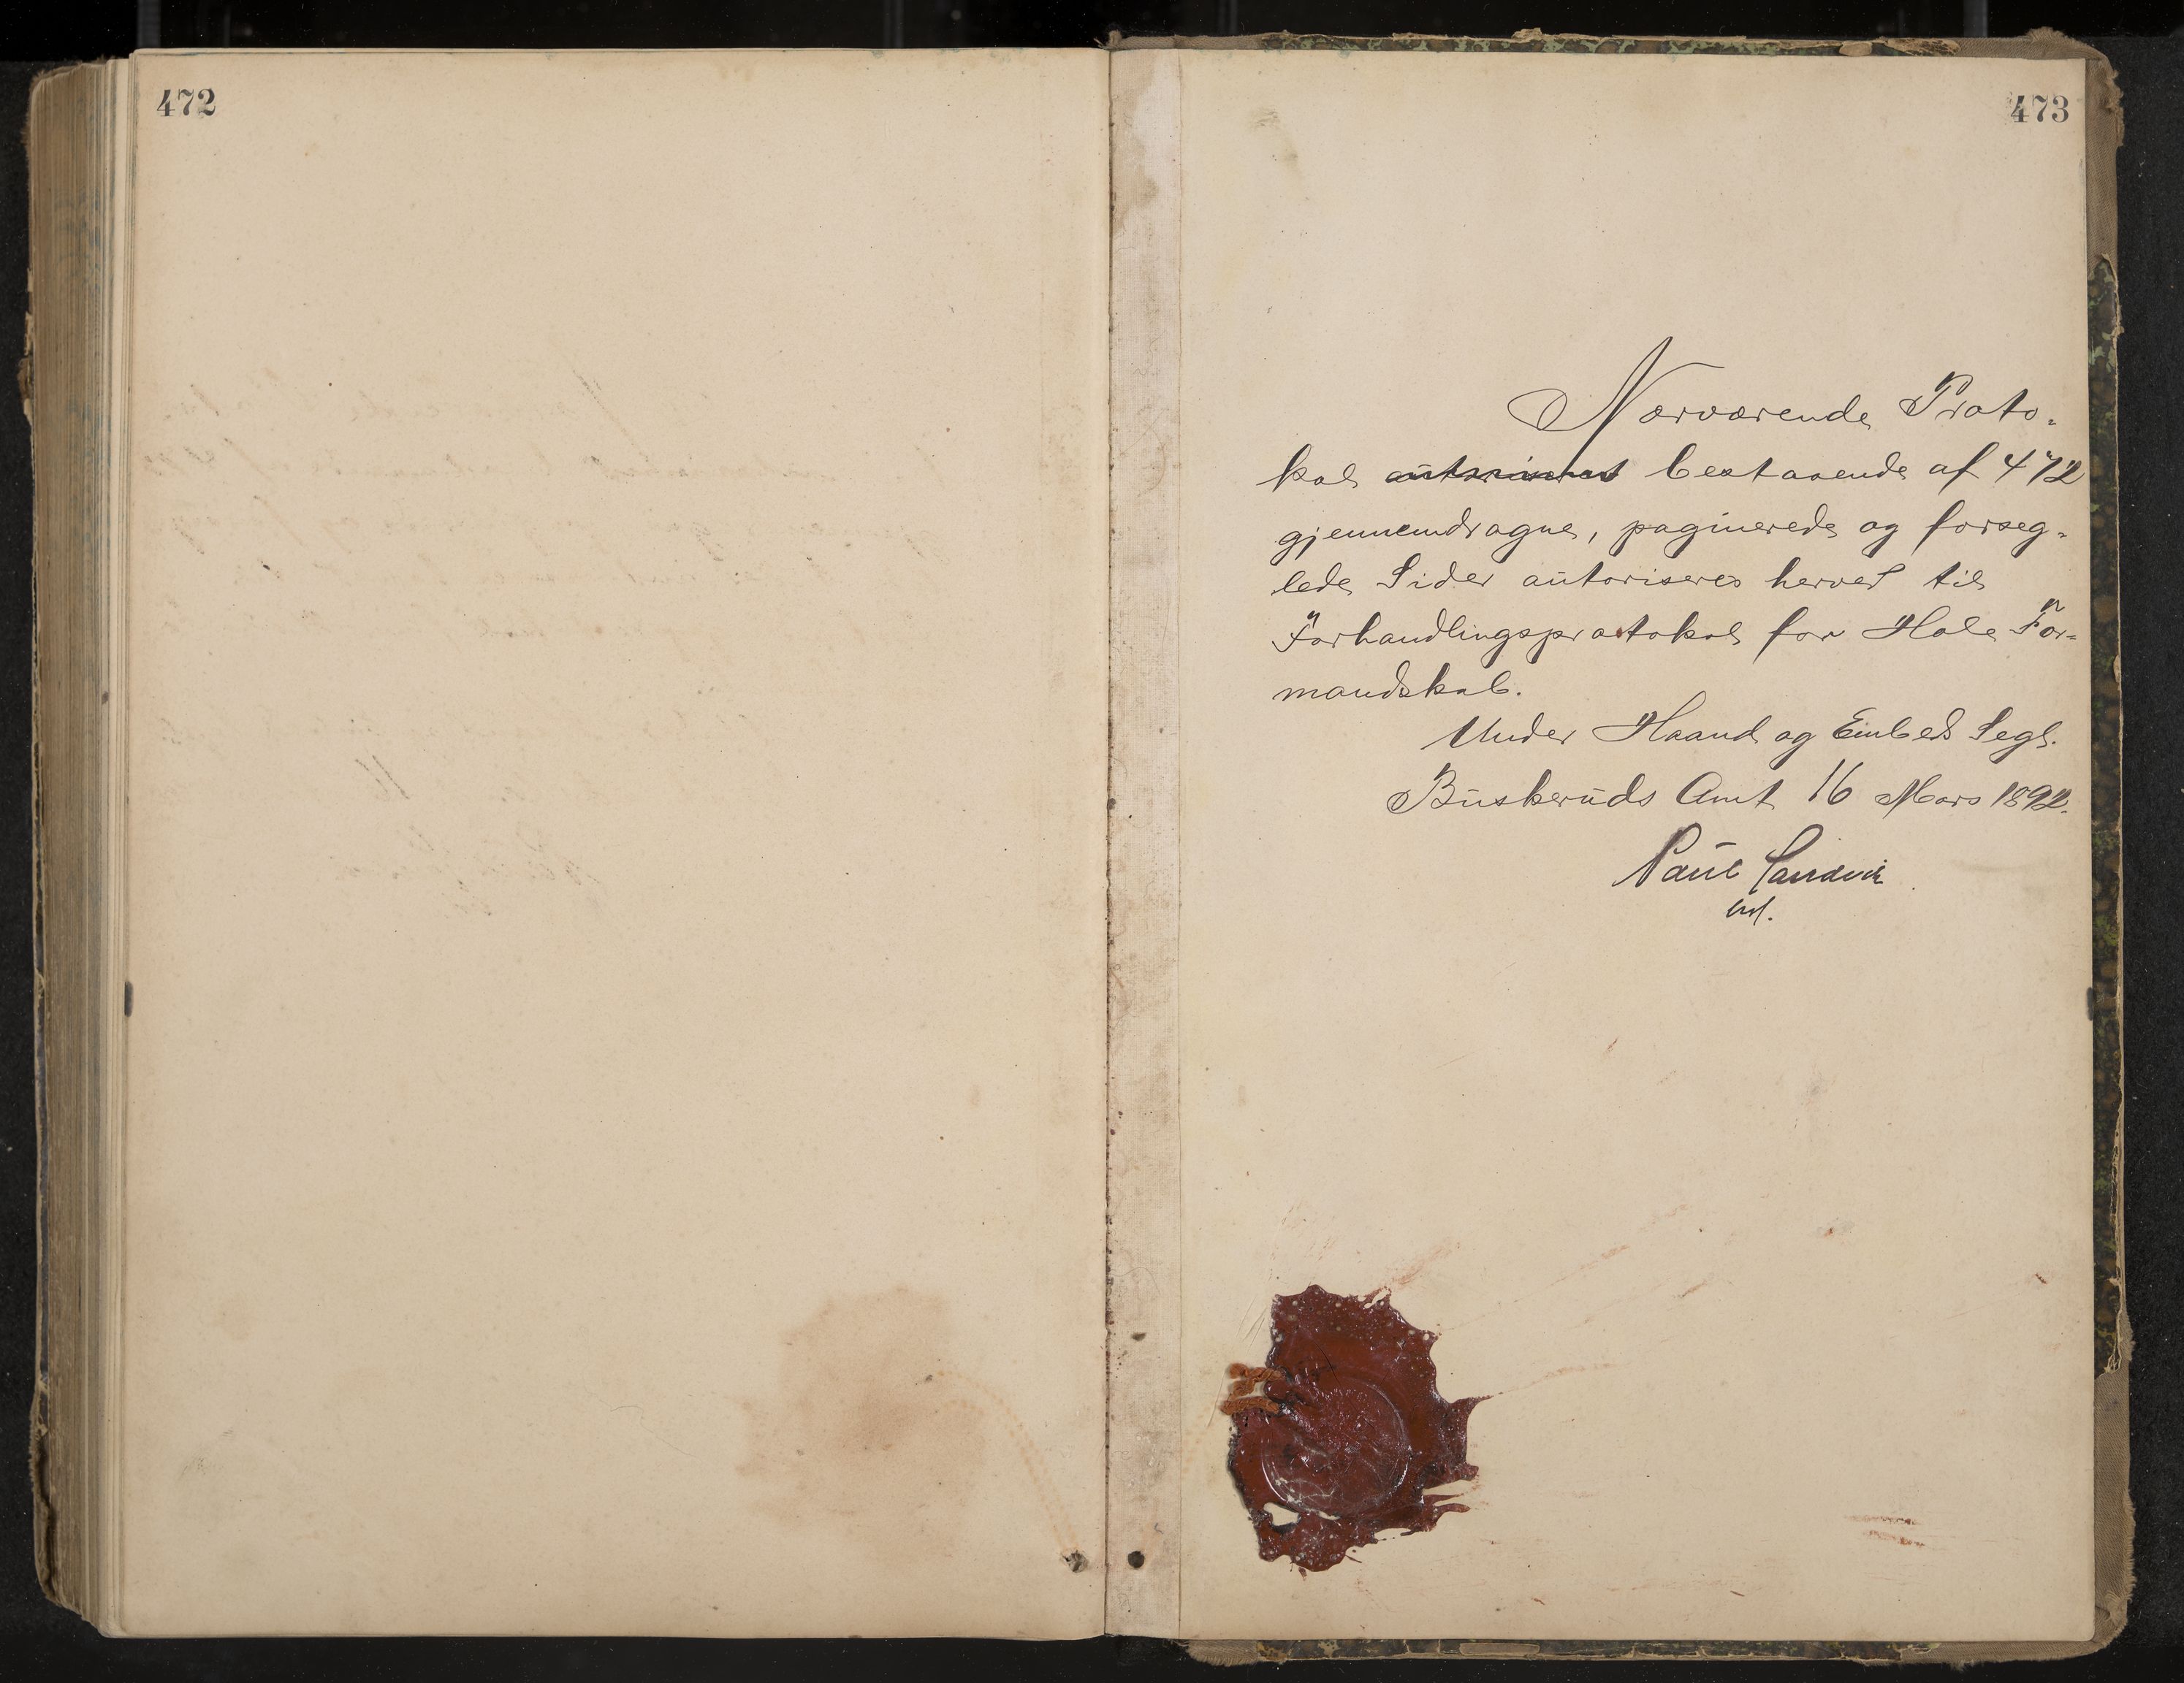 472
473
Nærværende Proto-
kol autoriseret bestaaende af 472
gjennemdragne, paginerede og forseg-
lede Sider autoriseres herved til
Forhandlingsprotokol for Hole For-
mandskab.
Under Haand og Embeds Segl.
Buskeruds Amt 16 Mars 1892.
Paul